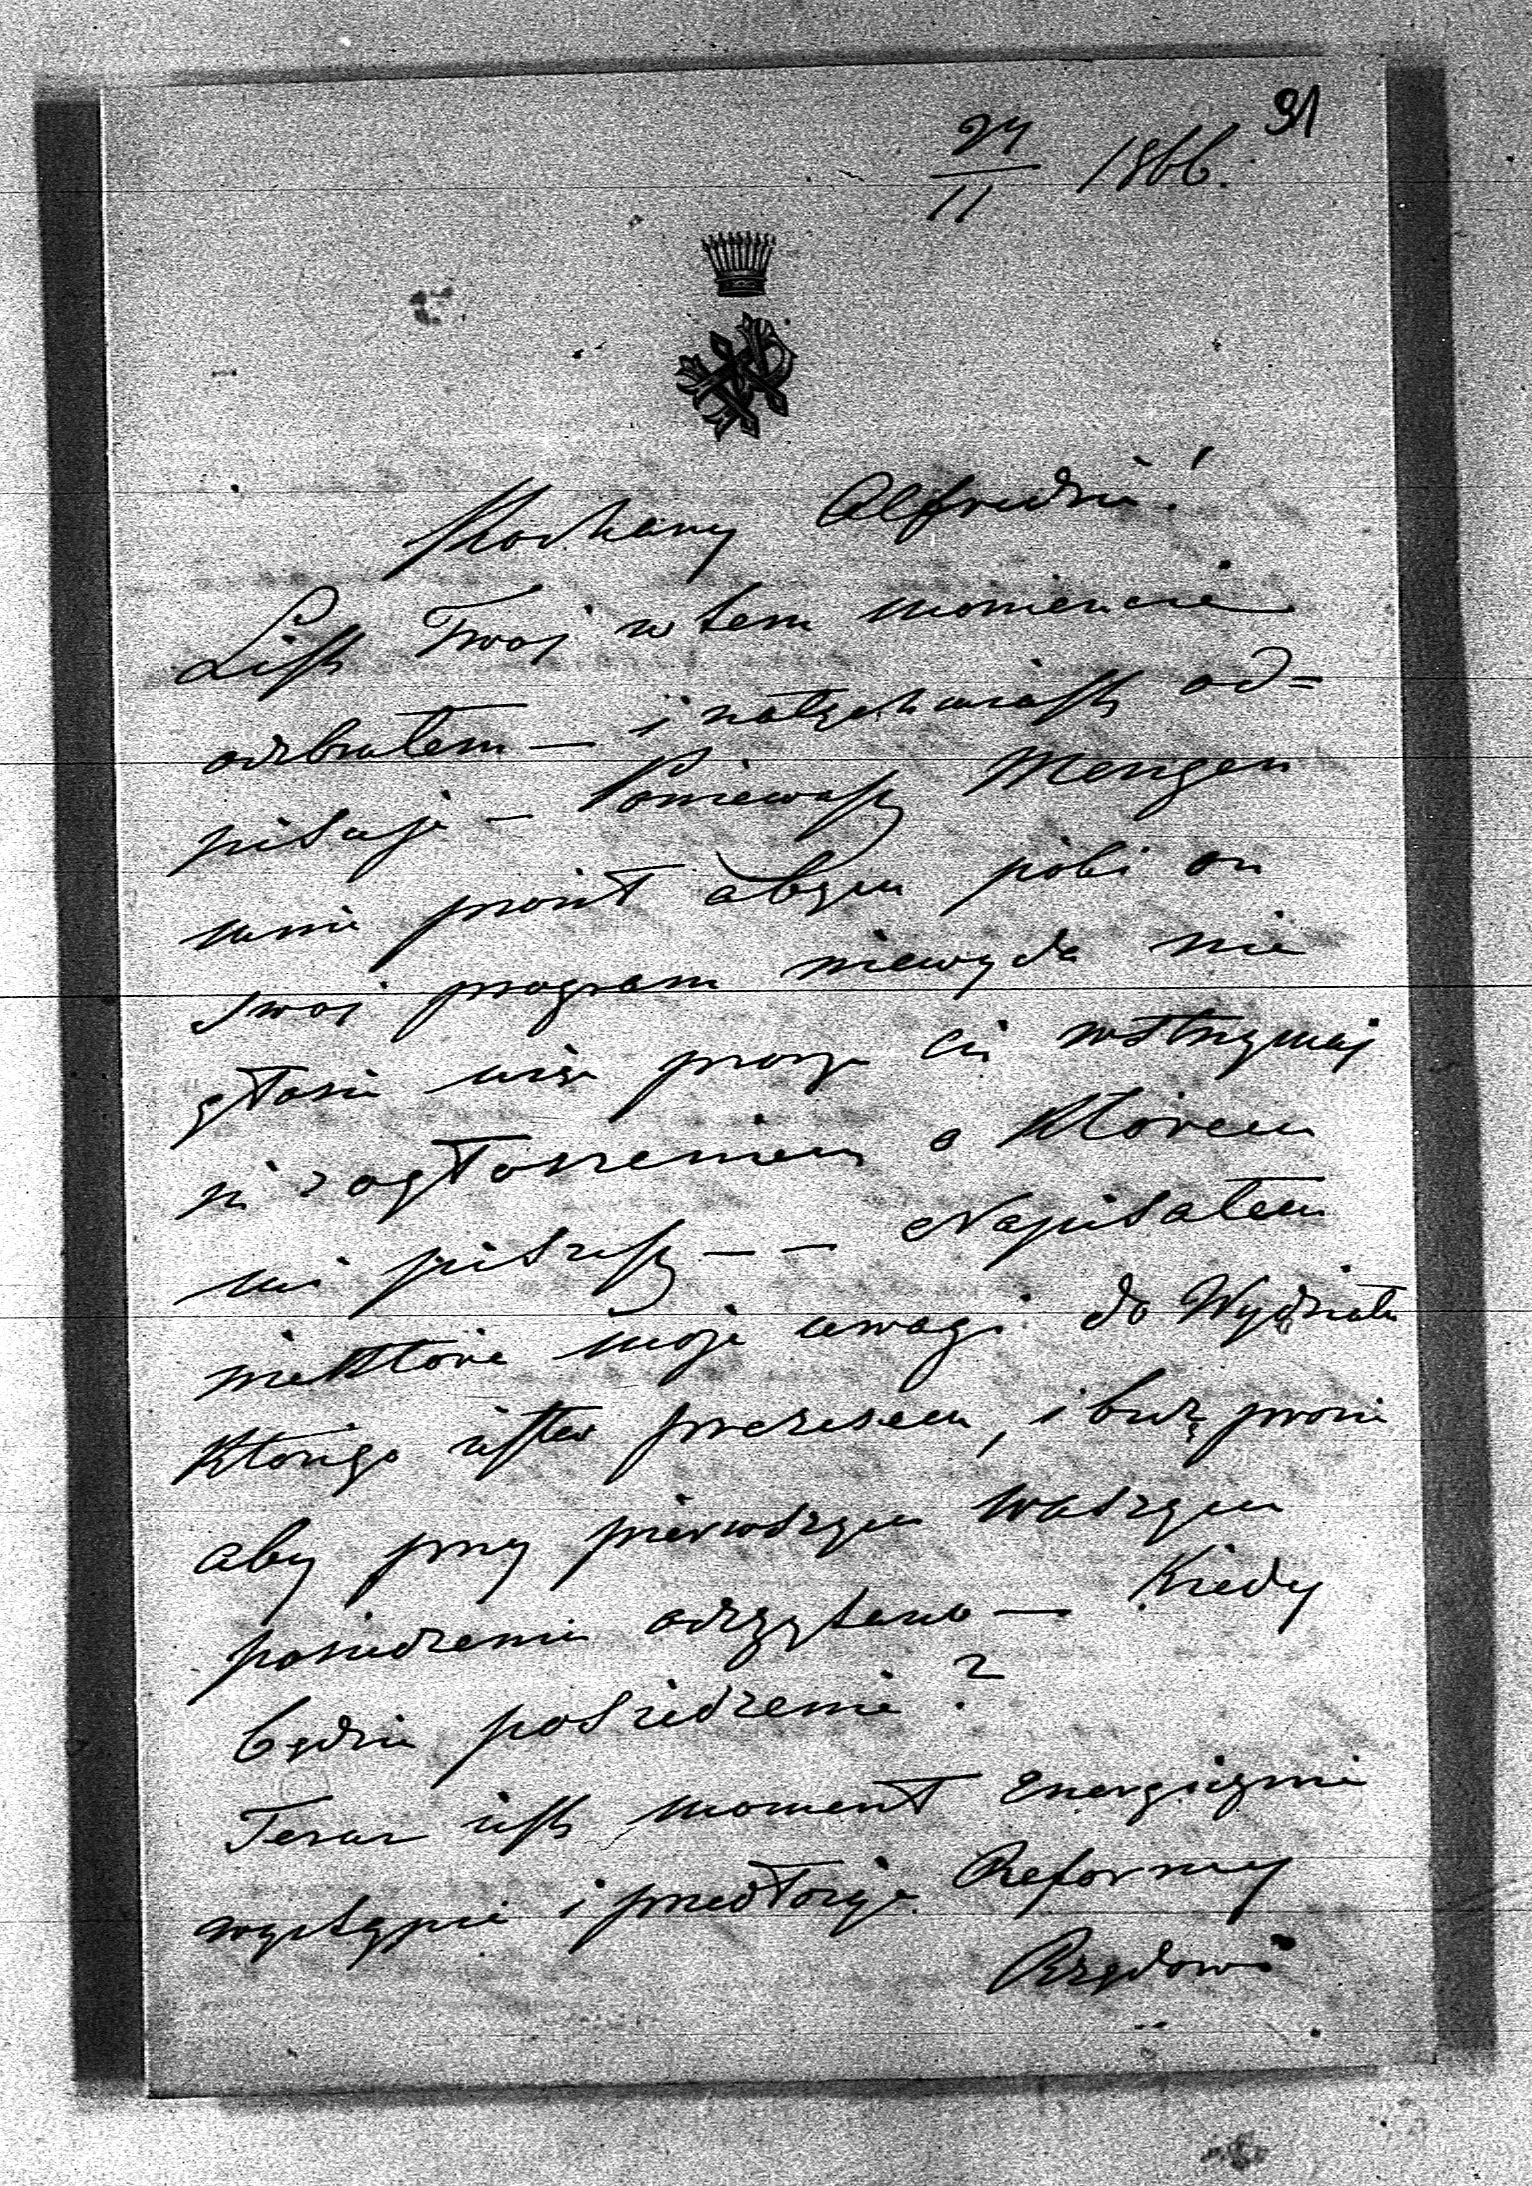 91
24/11 1866.
Kochany Alfredzie!
List Twoj w tem momencie
odebrałem — i natychmiast od=
pisuję — Ponieważ Mengen
mnie prosił abym póki on
swoj program niewyda nie
głosił więc proszę cię wstrzymaj
się z ogłoszeniem o którem
mi piszesz — — Napisałem
niektóre moje uwagi do Wydziału
którego jesteś prezesem, i będę prosić
aby przy pierwszym waszym
posiedzeniu odczytano — Kiedy
będzie posiedzenie?
Teraz jest moment energicznie
wystąpić i przedłożyć Reformy
Rządowi